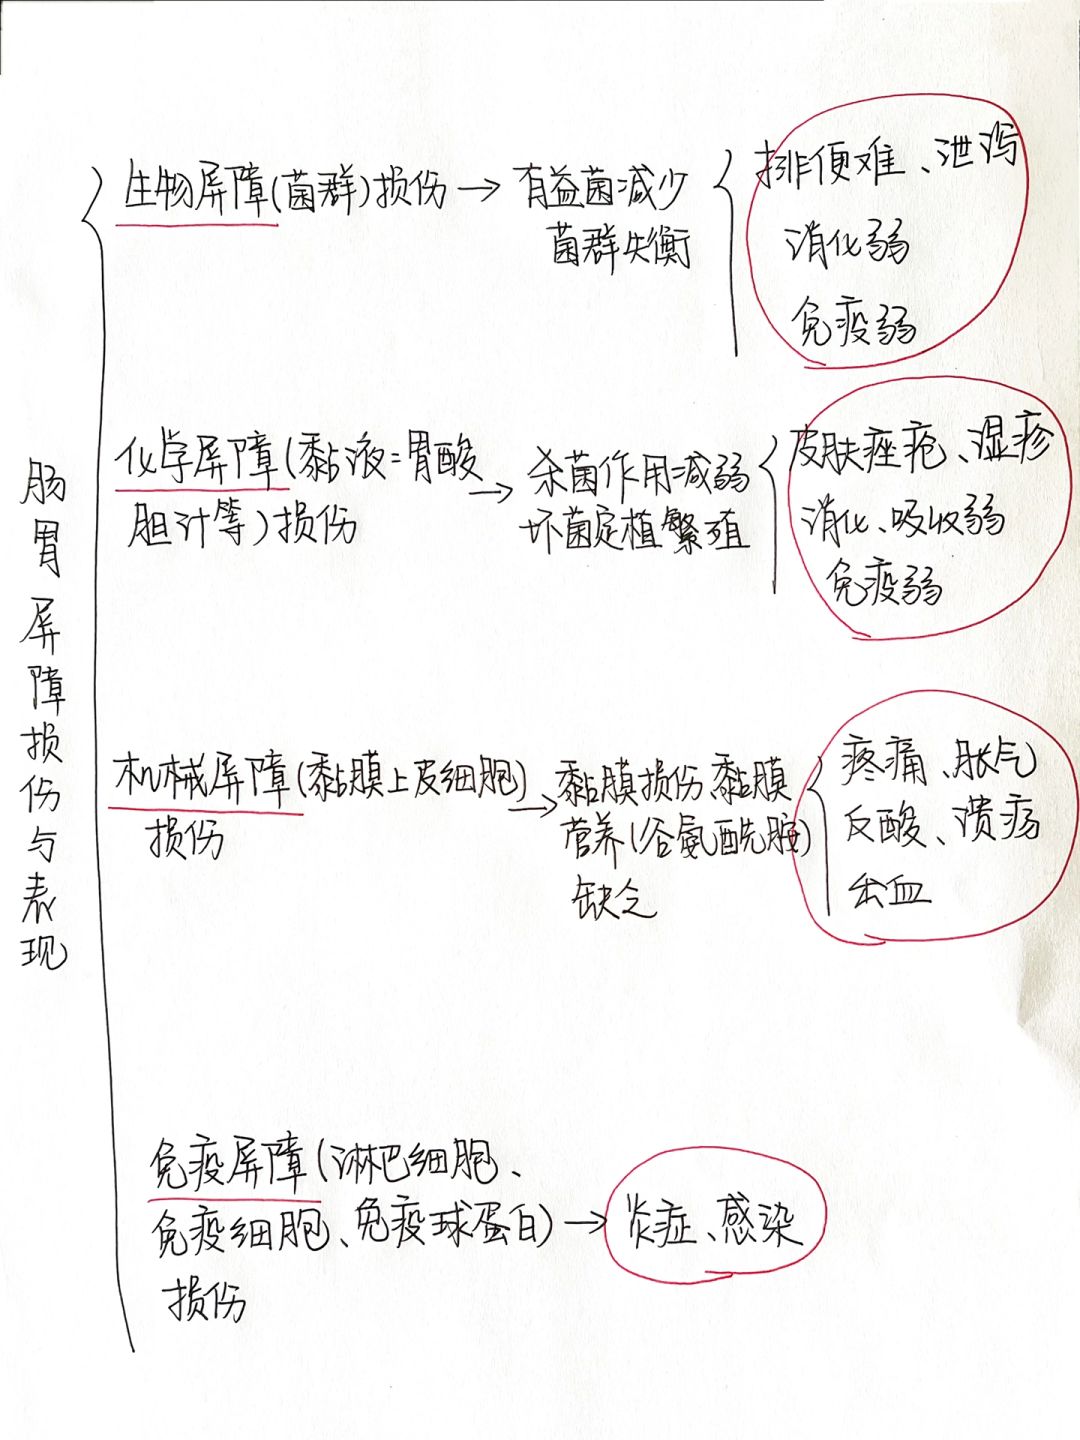 肠胃屏障损伤与表现
生物屏障(菌群)损伤→有益菌减少
菌群失衡
排便难、泄泻
消化弱
免疫弱
化学屏障(黏液=胃酸
胆汁等)损伤
→杀菌作用减弱
坏菌定植繁殖
皮肤痤疮、湿疹
消化、吸收弱
免疫弱
机械屏障(黏膜上皮细胞)
损伤
→黏膜损伤 黏膜
营养(谷氨酰胺)
缺乏
疼痛、胀气
反酸、溃疡
出血
免疫屏障(淋巴细胞、
免疫细胞、免疫球蛋白)→炎症、感染
损伤